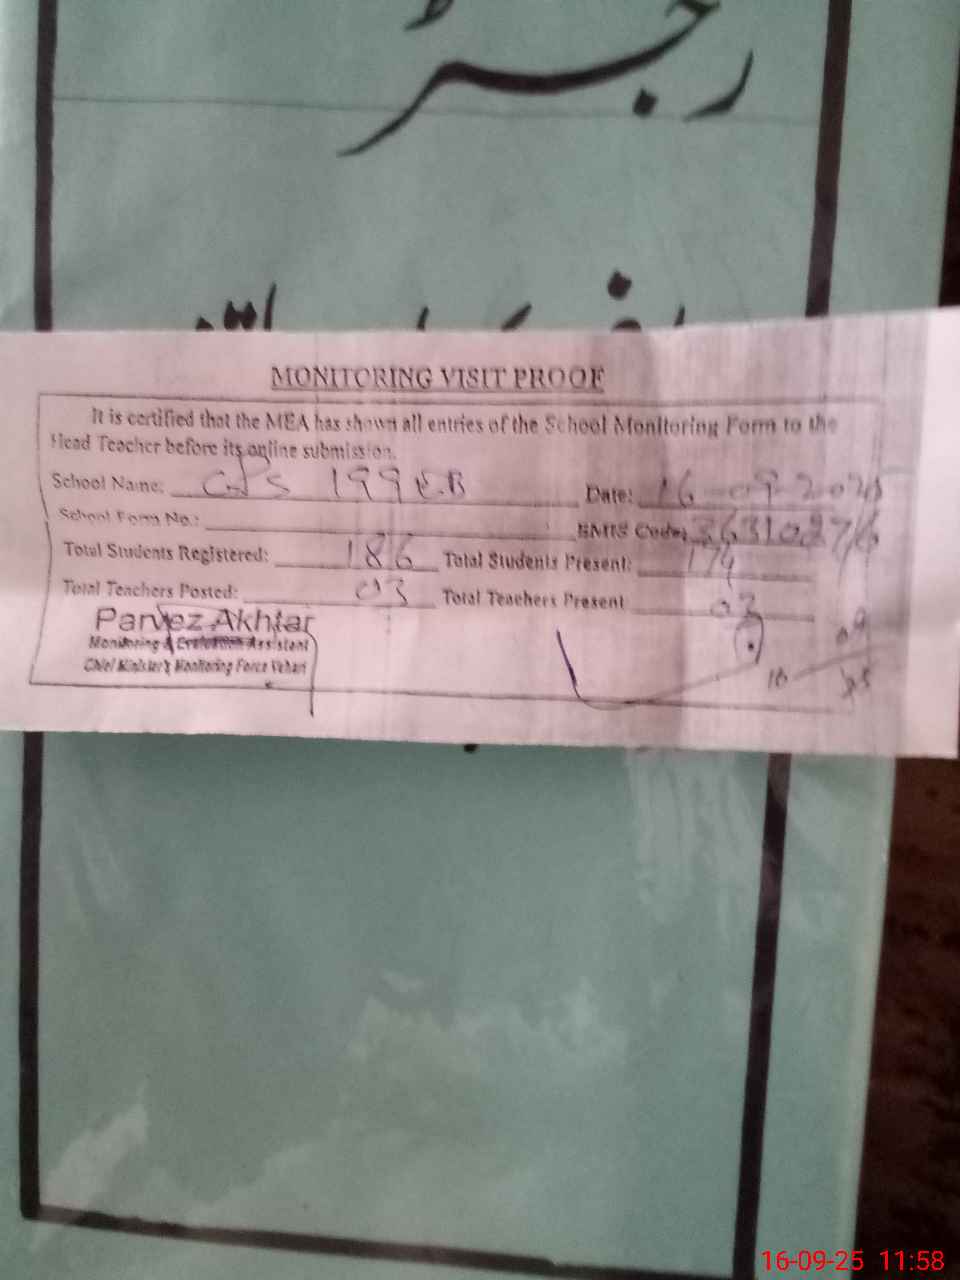 رجسٹر
MONITORING VISIT PROOF
It is certified that the MEA has shown all entries of the School Monitoring Form to the
Head Teacher before its online submission.
School Name: GPS 199 EB Date: 16-09-2025
School Form No.: EMIS Code: 36310276
Total Students Registered: 186 Total Students Present: 179
Total Teachers Posted: 03 Total Teachers Present 03
Parvez Akhtar
Monitoring & Evaluation Assistant
Chief Minister's Monitoring Force Vehari
16-09-25 11:58